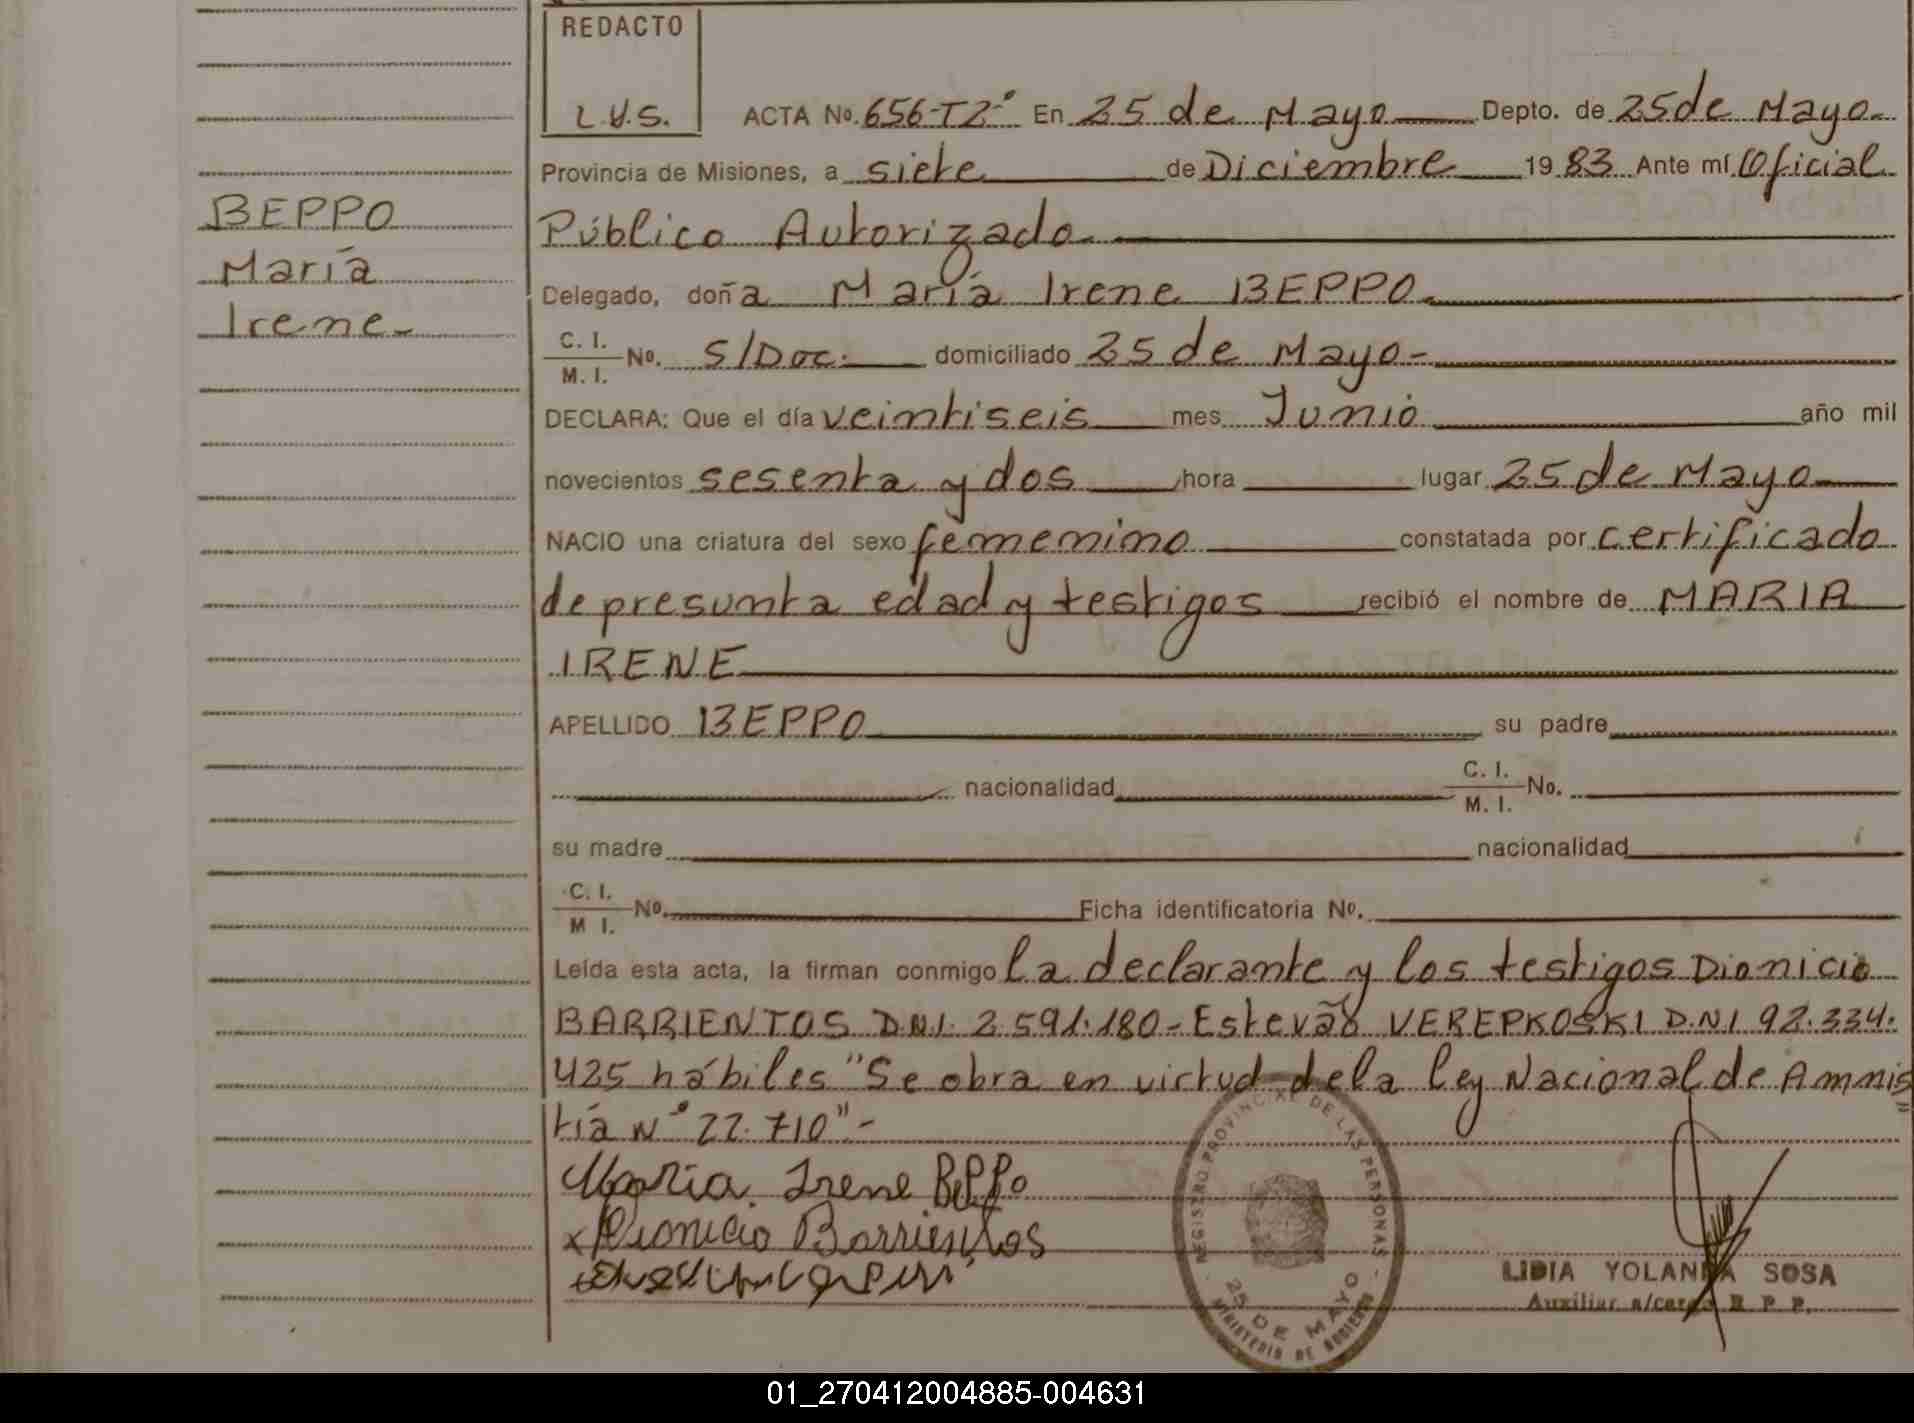 REDACTO
L.Y.S.
ACTA No. 656-T2º En 25 de Mayo Depto. de 25 de Mayo.
Provincia de Misiones, a siete de Diciembre 1983 Ante mí Oficial
Público Autorizado.
BEPPO
María
Irene.
Delegado, doña María Irene BEPPO.
C. I.
M. I. No. S/Doc. domiciliado 25 de Mayo-
DECLARA: Que el día veintiseis mes Junio año mil
novecientos sesenta y dos hora lugar 25 de Mayo
NACIO una criatura del sexo femenino constatada por certificado
de presunta edad y testigos recibió el nombre de MARIA
IRENE
APELLIDO BEPPO su padre
nacionalidad C. I.
M. I. No.
su madre nacionalidad
C. I.
M I. No. Ficha identificatoria No.
Leída esta acta, la firman conmigo la declarante y los testigos Dionicio
BARRIENTOS D.N.I. 2.591.180- Estevão VEREPKOSKI D.N.I 92.334.
425 hábiles "Se obra en virtud de la ley Nacional de Amnis
tía Nº 22.710"-
Maria Irene Beppo
x Dionicio Barrientos
REGISTRO PROVINCIAL DE LAS PERSONAS
25 DE MAYO
MINISTERIO DE GOBIERNO
LIDIA YOLANDA SOSA
Auxiliar a/cargo R P P.
01_270412004885-004631